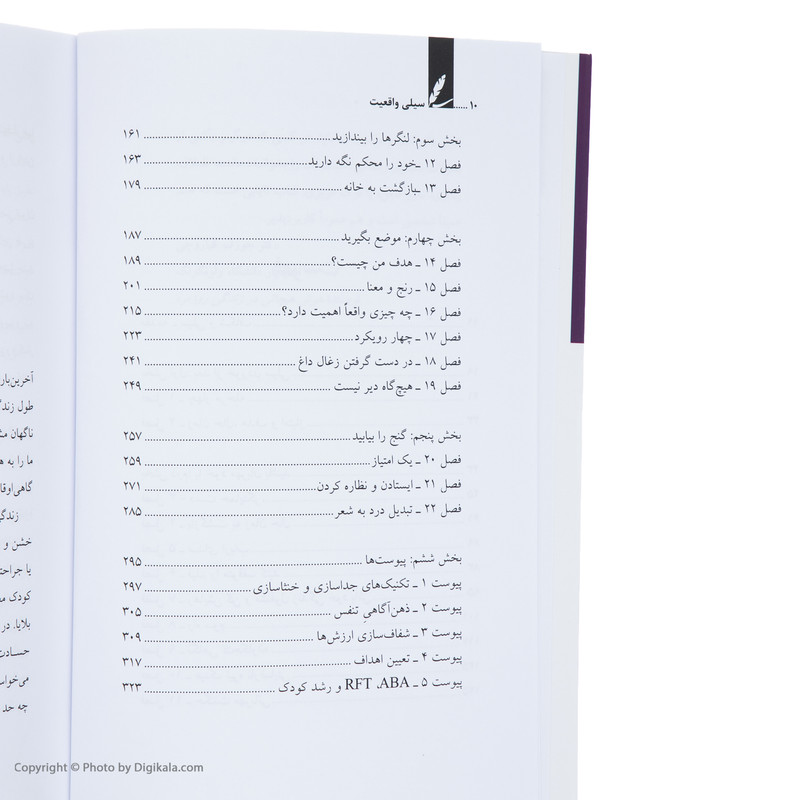 ۱۰ ...... سیلی واقعیت
بخش سوم: لنگرها را بیندازید ........ ۱۶۱
فصل ۱۲ ـ خود را محکم نگه دارید ........ ۱۶۳
فصل ۱۳ ـ بازگشت به خانه ........ ۱۷۹
بخش چهارم: موضع بگیرید ........ ۱۸۷
فصل ۱۴ ـ هدف من چیست؟ ........ ۱۸۹
فصل ۱۵ ـ رنج و معنا ........ ۲۰۱
فصل ۱۶ ـ چه چیزی واقعاً اهمیت دارد؟ ........ ۲۱۵
فصل ۱۷ ـ چهار رویکرد ........ ۲۲۳
فصل ۱۸ ـ در دست گرفتن زغال داغ ........ ۲۴۱
فصل ۱۹ ـ هیچ‌گاه دیر نیست ........ ۲۴۹
بخش پنجم: گنج را بیابید ........ ۲۵۷
فصل ۲۰ ـ یک امتیاز ........ ۲۵۹
فصل ۲۱ ـ ایستادن و نظاره کردن ........ ۲۷۱
فصل ۲۲ ـ تبدیل درد به شعر ........ ۲۸۵
بخش ششم: پیوست‌ها ........ ۲۹۵
پیوست ۱ ـ تکنیک‌های جداسازی و خنثاسازی ........ ۲۹۷
پیوست ۲ ـ ذهن‌آگاهیِ تنفس ........ ۳۰۵
پیوست ۳ ـ شفاف‌سازی ارزش‌ها ........ ۳۰۹
پیوست ۴ ـ تعیین اهداف ........ ۳۱۷
پیوست ۵ ـ RFT ،ABA و رشد کودک ........ ۳۲۳
آخرین‌بار
طول
ناگهان
ما را به
خشن و
یا
کودک
بلایا. در
چه حد
Copyright © Photo by Digikala.com